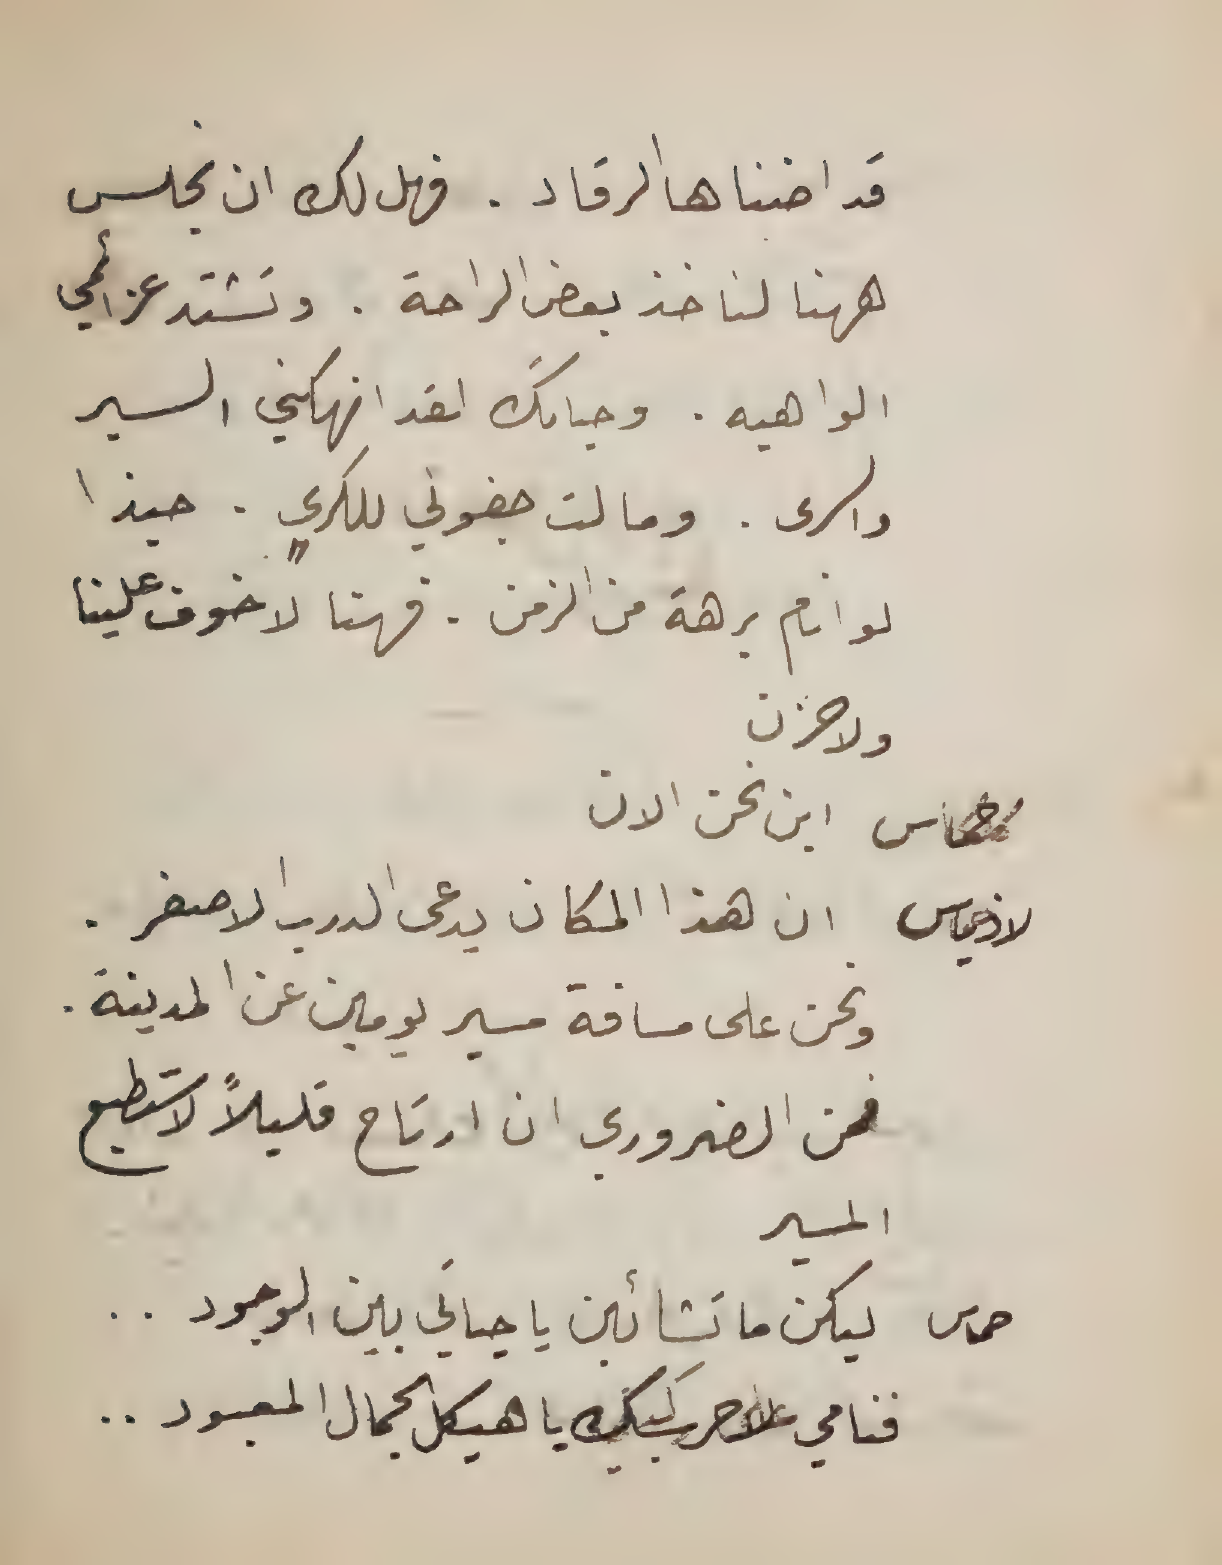 قد اضناها الرقاد . فهل لك ان نجلس
ههنا لناخذ بعض الراحة . وتشتد عزائمي
الواهيه . وحياتك لقد انهكني السير
والسرى . ومالت جفوني للكرى . حبذا
لو انام برهة من الزمن . فهنا لا خوف علينا
ولا حزن
اين نحن الان
ان هذا المكان يدعى الدرب الاصفر .
ونحن على مسافة مسير يومين عن المدينة .
فمن الضروري ان ارتاح قليلاً لاستطيع
المسير
حماس ليكن ما تشائين يا حياتي بين الوجود . .
فنامي يا هيكل الجمال المعبود . .